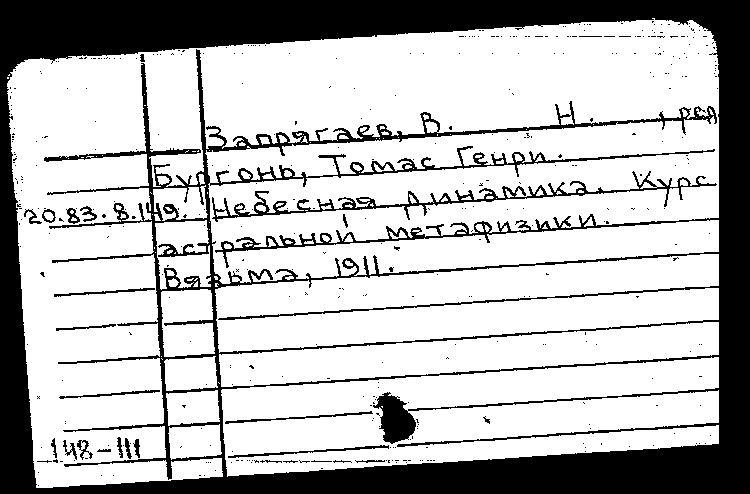 Запрягаев, В. Н. , ред
Бургонь, Томас Генри.
20.83.8.149. Небесная динамика. Курс
астральной метафизики.
Вязьма, 1911.
148-III